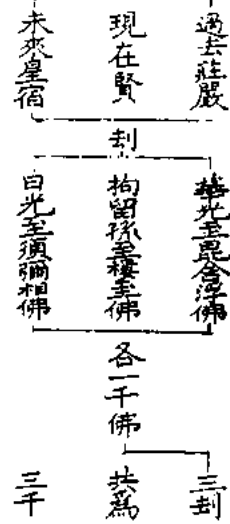 過去莊嚴
現在賢
未來星宿
刦
華光至毘舍浮佛
拘留孫至樓至佛
日光至須彌相佛
各一千佛
三刦
共為
三千